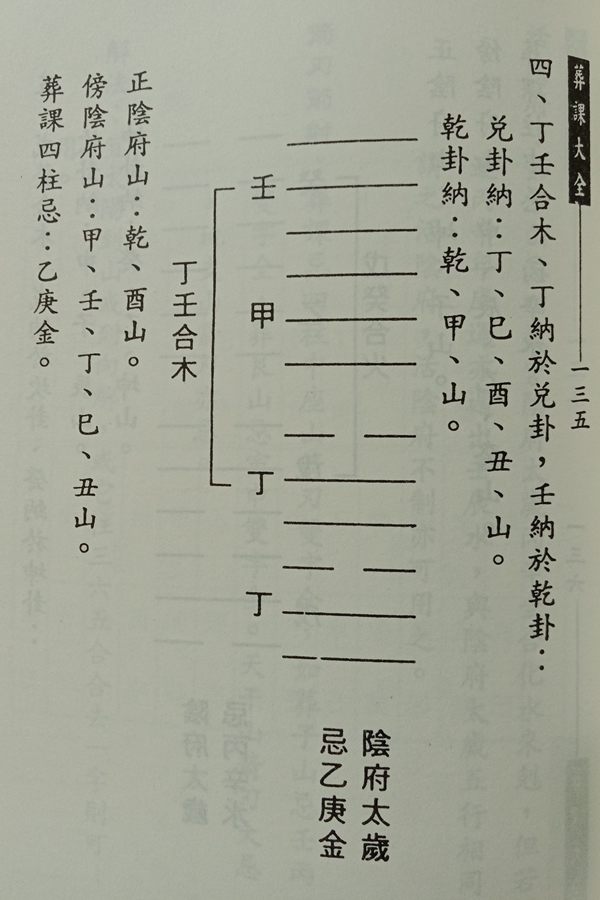 葬課大全
一三五
四、丁壬合木、丁納於兌卦，壬納於乾卦：
兌卦納：丁、巳、酉、丑、山。
乾卦納：乾、甲、山。
陰府太歲
忌乙庚金
壬
甲
丁
丁
丁壬合木
正陰府山：乾、酉山。
傍陰府山：甲、壬、丁、巳、丑山。
葬課四柱忌：乙庚金。